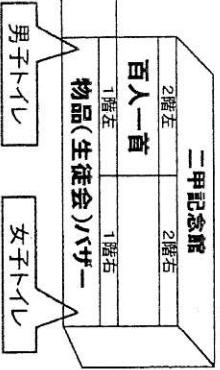 二甲記念館
2階左
2階右
百人一首
1階左
1階右
物品(生徒会)バザー
男子トイレ
女子トイレ